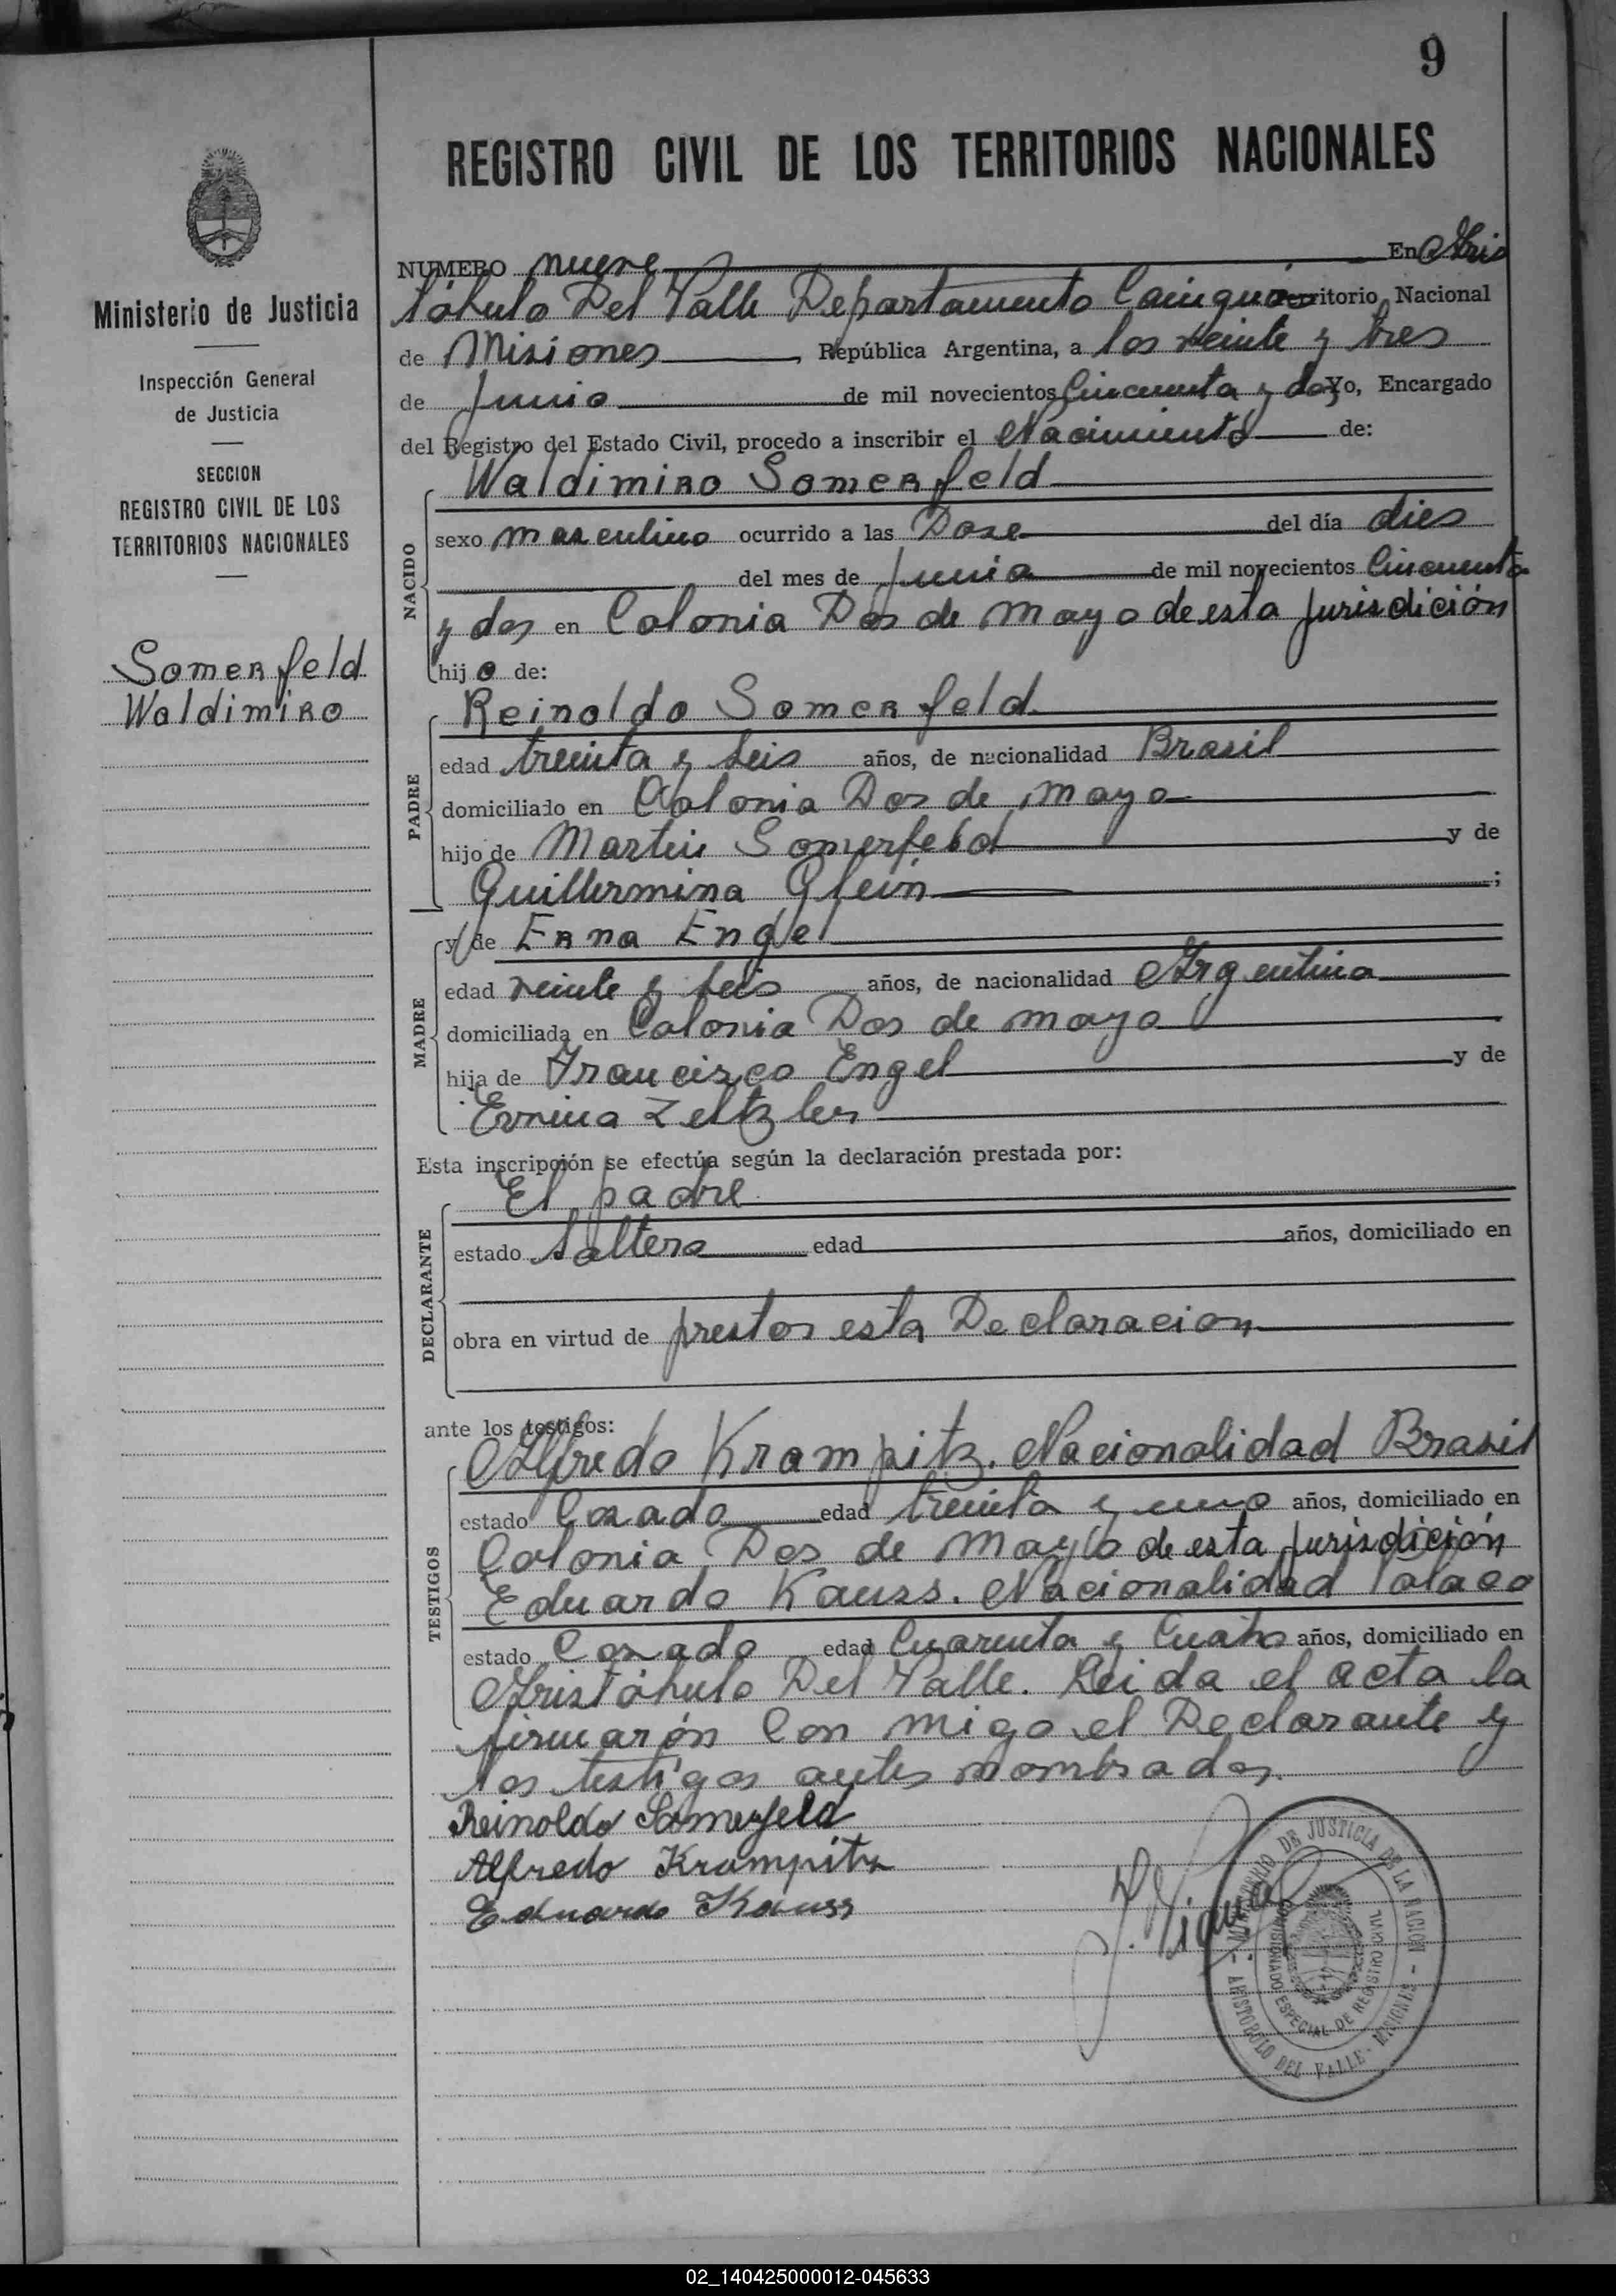 9
REGISTRO CIVIL DE LOS TERRITORIOS NACIONALES
Ministerio de Justicia
Inspección General
de Justicia
SECCION
REGISTRO CIVIL DE LOS
TERRITORIOS NACIONALES
Somerfeld
Waldimiro
NUMERO nueve En Aris
tóbulo Del Valle Departamento Cainguás Territorio Nacional
de Misiones, República Argentina, a los veinte y tres
de Junio de mil novecientos Cincuenta y dos Yo, Encargado
del Registro del Estado Civil, procedo a inscribir el Nacimiento de:
NACIDO
Waldimiro Somerfeld
sexo masculino ocurrido a las Dose del día dies
del mes de Junio de mil novecientos Cincuenta
y dos en Colonia Dos de Mayo de esta Jurisdición
hijo de:
PADRE
Reinoldo Somerfeld
edad treinta y seis años, de nacionalidad Brasil
domiciliado en Colonia Dos de Mayo
hijo de Martin Somerfeld y de
Guillermina Glein;
MADRE
y de Erna Engel
edad veinte y seis años, de nacionalidad Argentina
domiciliada en Colonia Dos de mayo
hija de Francisco Engel y de
Ernina
Esta inscripción se efectúa según la declaración prestada por:
DECLARANTE
El padre
estado Saltero edad años, domiciliado en
obra en virtud de prestar esta Declaracion
ante los testigos:
TESTIGOS
Alfredo Krampitz. Nacionalidad Brasil
estado Casado edad treinta y uno años, domiciliado en
Colonia Dos de Mayo de esta Jurisdición
Eduardo Kauss. Nacionalidad Polaco
estado Casado edad Cuarenta y Cuatro años, domiciliado en
Aristóbulo Del Valle. Leida el acta la
firmarón Con migo el Declarante y
los testigos antes nombrados.
Reinoldo Somerfeld
Alfredo Krampitz
Eduardo Kauss
MINISTERIO DE JUSTICIA DE LA NACION
COMISIONADO ESPECIAL DE REGISTRO CIVIL
ARISTOBULO DEL VALLE - MISIONES
02_140425000012-045633